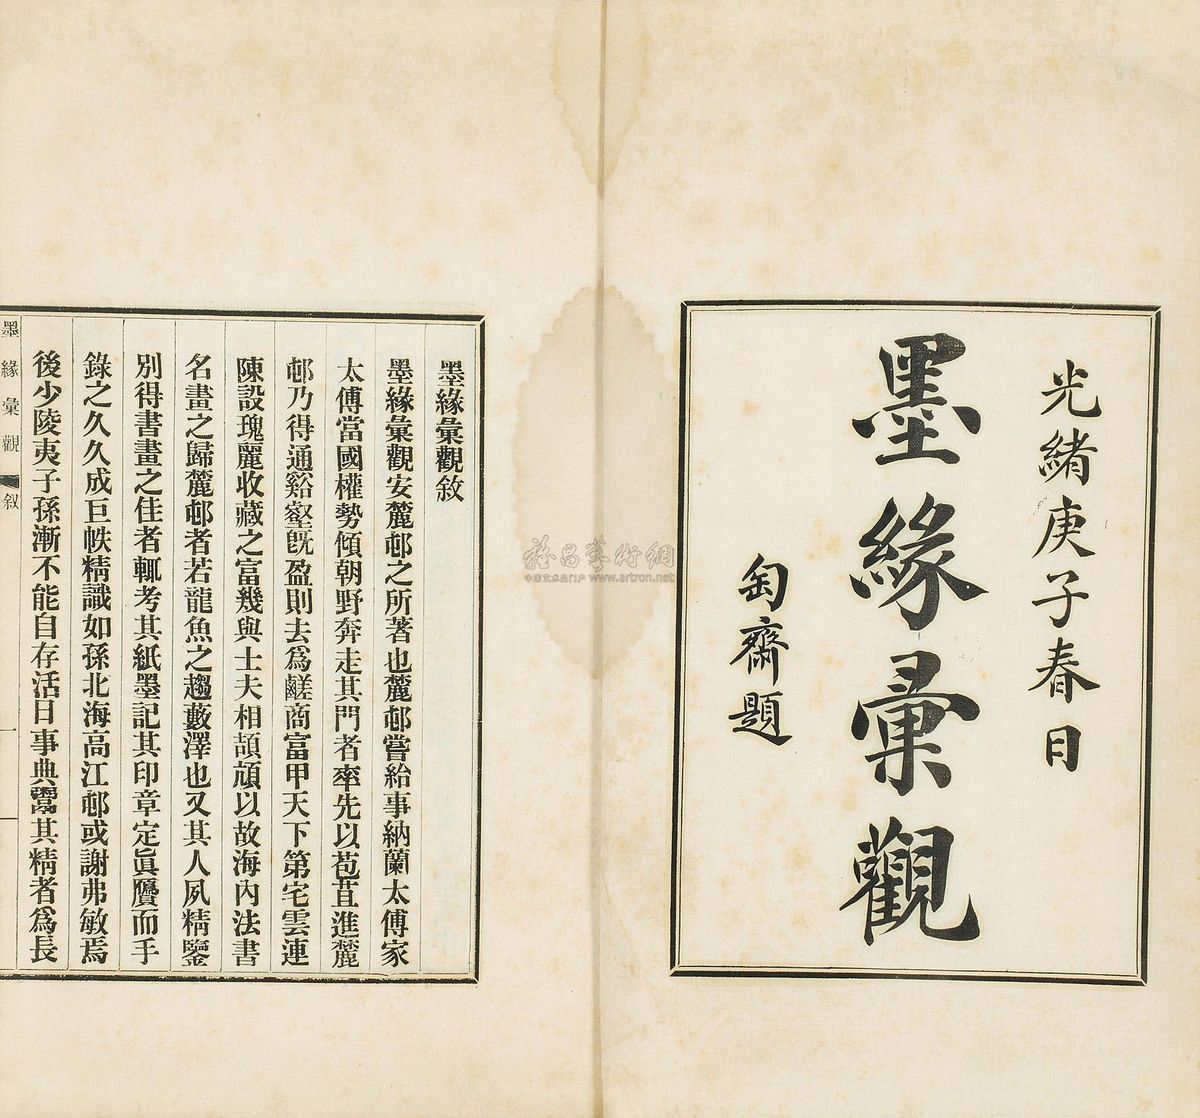 光緒庚子春日
墨緣彙觀
匋齋題
墨緣彙觀敘
墨緣彙觀安麓邨之所著也麓邨嘗給事納蘭太傅家
太傅當國權勢傾朝野奔走其門者率先以苞苴進麓
邨乃得通谿壑旣盈則去爲鹺商富甲天下第宅雲連
陳設瑰麗收藏之富幾與士夫相頡頏以故海內法書
名畫之歸麓邨者若龍魚之趨藪澤也又其人夙精鑒
別得書畫之佳者輒考其紙墨記其印章定眞贗而手
錄之久久成巨帙精識如孫北海高江邨或謝弗敏焉
後少陵夷子孫漸不能自存活日事典鬻其精者爲長
墨緣彙觀 敘 一
雅昌藝術網
中国艺术品门户 www.artron.net